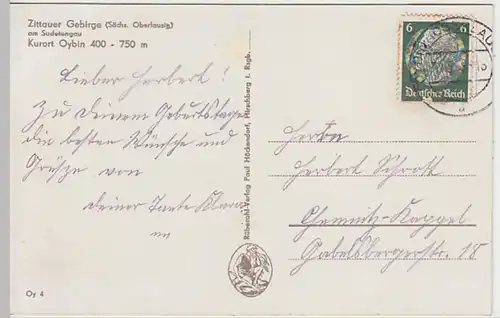 Zittauer Gebirge (Sächs. Oberlausitz)
am Sudetengau
Kurort Oybin 400 - 750 m
Lieber Herbert!
Zu Deinem Geburtstage
die besten Wünsche und
Grüsze von
Deiner Tante Klara
Rübezahl-Verlag Paul Höckendorf, Hirschberg i. Rsgb.
6 6
Deutsches Reich
Herrn
Herbert Schrott
Chemnitz-Kappel
Gabelsbergerstr. 18
Oy 4